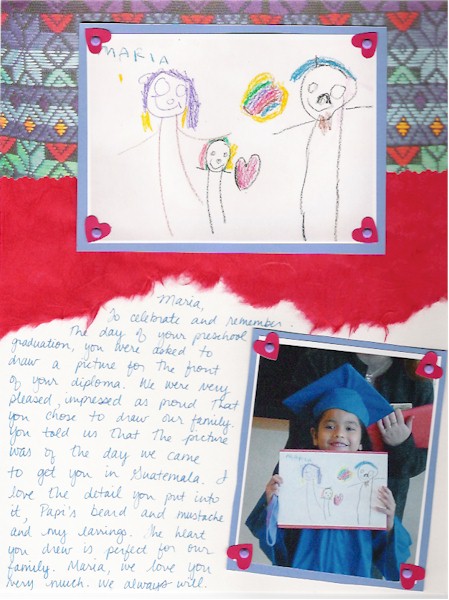 MARIA
Maria,
To celebrate and remember.
The day of your preschool
graduation, you were asked to
draw a picture for the front
of your diploma. We were very
pleased, impressed as proud that
you chose to draw our family.
You told us that the picture
was of the day we came
to get you in Guatemala. I
love the detail you put into
it, Papi's beard and mustache
and my earrings. The heart
you drew is perfect for our
family. Maria, we love you
very much. We always will.
MARIA